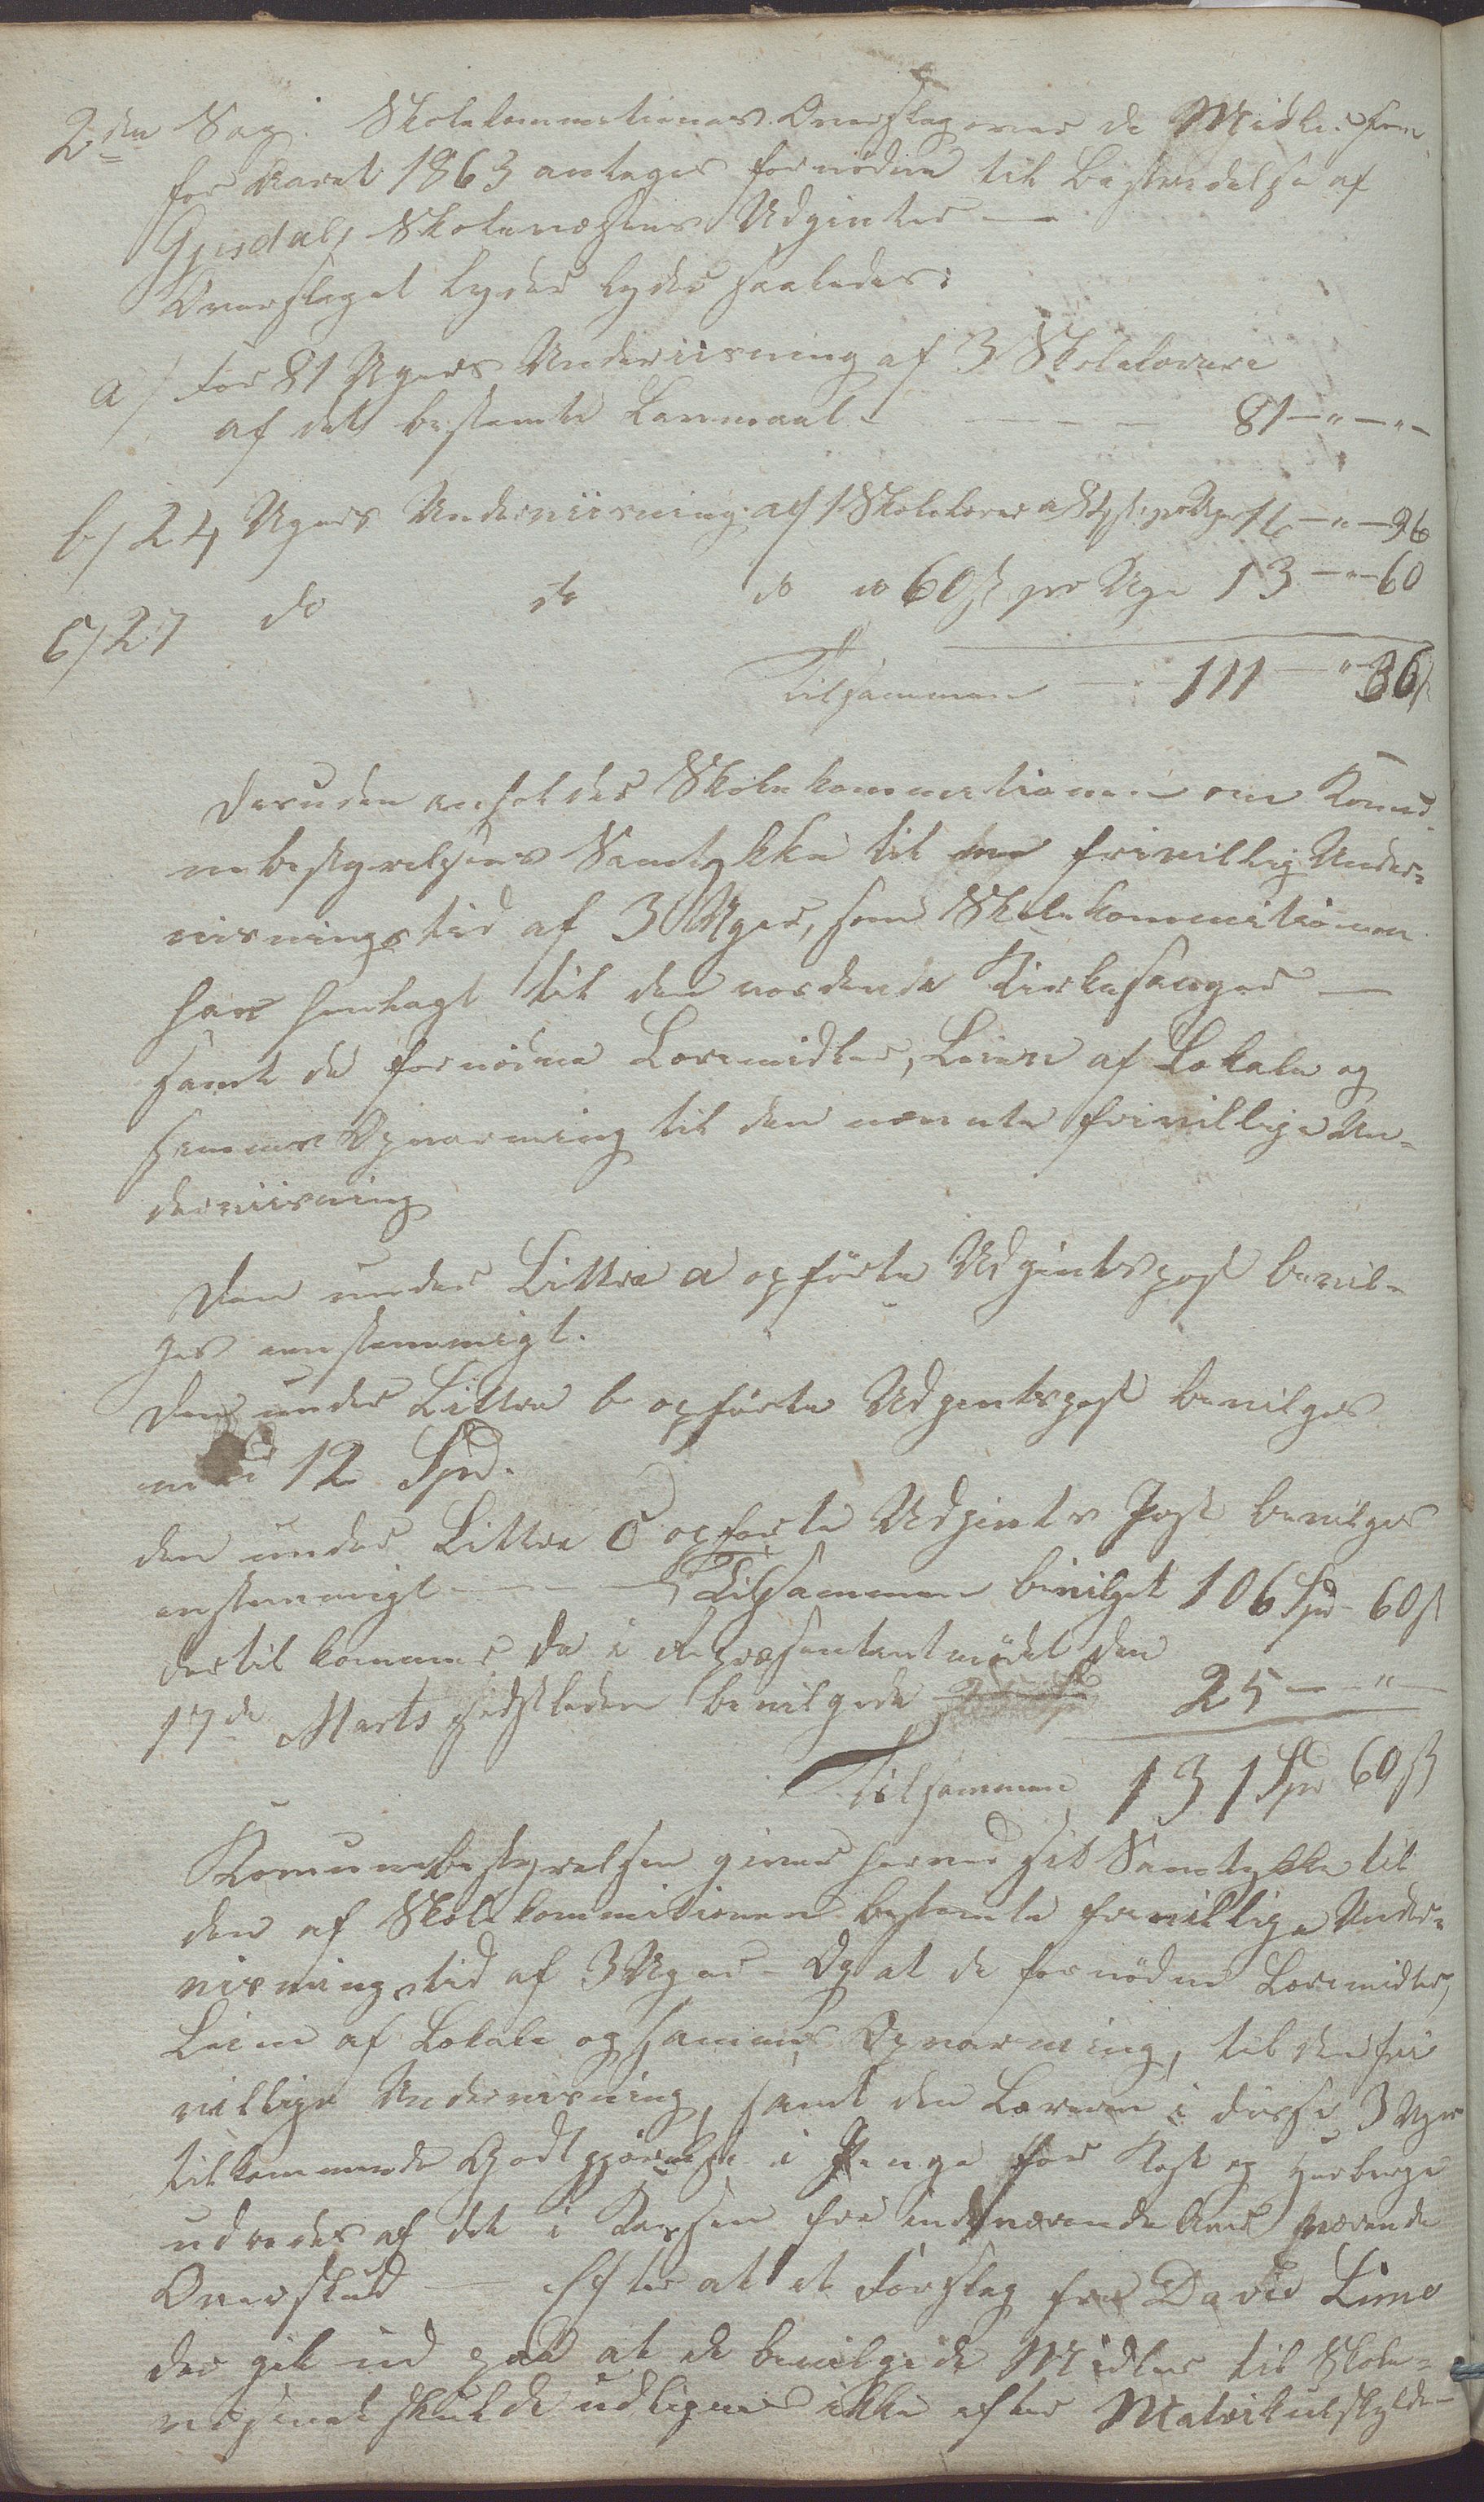 2den Sag. Skolekommitionens Overslag over de Midler som
for Aaret 1863 antages fornødne til Bestridelse af
Gjesdals Skolevæsens Udgivter —
Overslaget lyder lyder saaledes:
a/ For 81 Ugers Underviisning af 3 Skolelærere
af det bestemte Lønmaal - - - - 81 — " — " —
b/ 24 Ugers Underviisning af 1 Skolelærer a 84 s pr Uge 16 — " — 96
c/ 27 do do do a 60 s pr Uge 13 — " — 60
Tilsammen — 111 — " 36 s
Desuden anholder Skolekommetionen om Komu-
nebestyrelsens Samtykke til en frivillig Under-
visningstid af 3 Uger, som Skolekommitionen
har henlagt til den vordende Kirkesanger —
samt de fornødne Læremidler, Leien af Lokale og
sammes Opvarming til den nævnte frivillige Un-
derviisning
Den under Littra a opførte Udgivtspost bevil-
ges eenstemmigt.
Den under Littra b opførte Udgivtspost bevilges
med 12 Spd.
den under Littra C opførte Udgivts Post bevilges
enstemmigt - - - Tilsammen bevilget 106 Spd - 60 s
dertil kommer de i Repræsentantmødet den
17de Marts sidstleden bevilgede 25 — " —
Tilsammen 131 Spd 60 s
Komunebestyrelsen giver herved sit Samtykke til
den af Skolekommitionen bestemte frivillige Under-
visningstid af 3 Uger - Og at de fornødne Læremidler,
Leien af Lokale og sammes Opvarming, til den fri
villige Undervisning, samt den Læreren i disse 3 Uger
tilkommende Godtgjørelse i Penge for Kost og Herberge
udredes af det i Kassen fra indeværende Aar værende
Overskud — Efter at et Forslag fra David Lima
der gik ud paa at de bevilgede Midler til Skole-
væsenet skulde udlignes ikke efter Matrikulskylden-